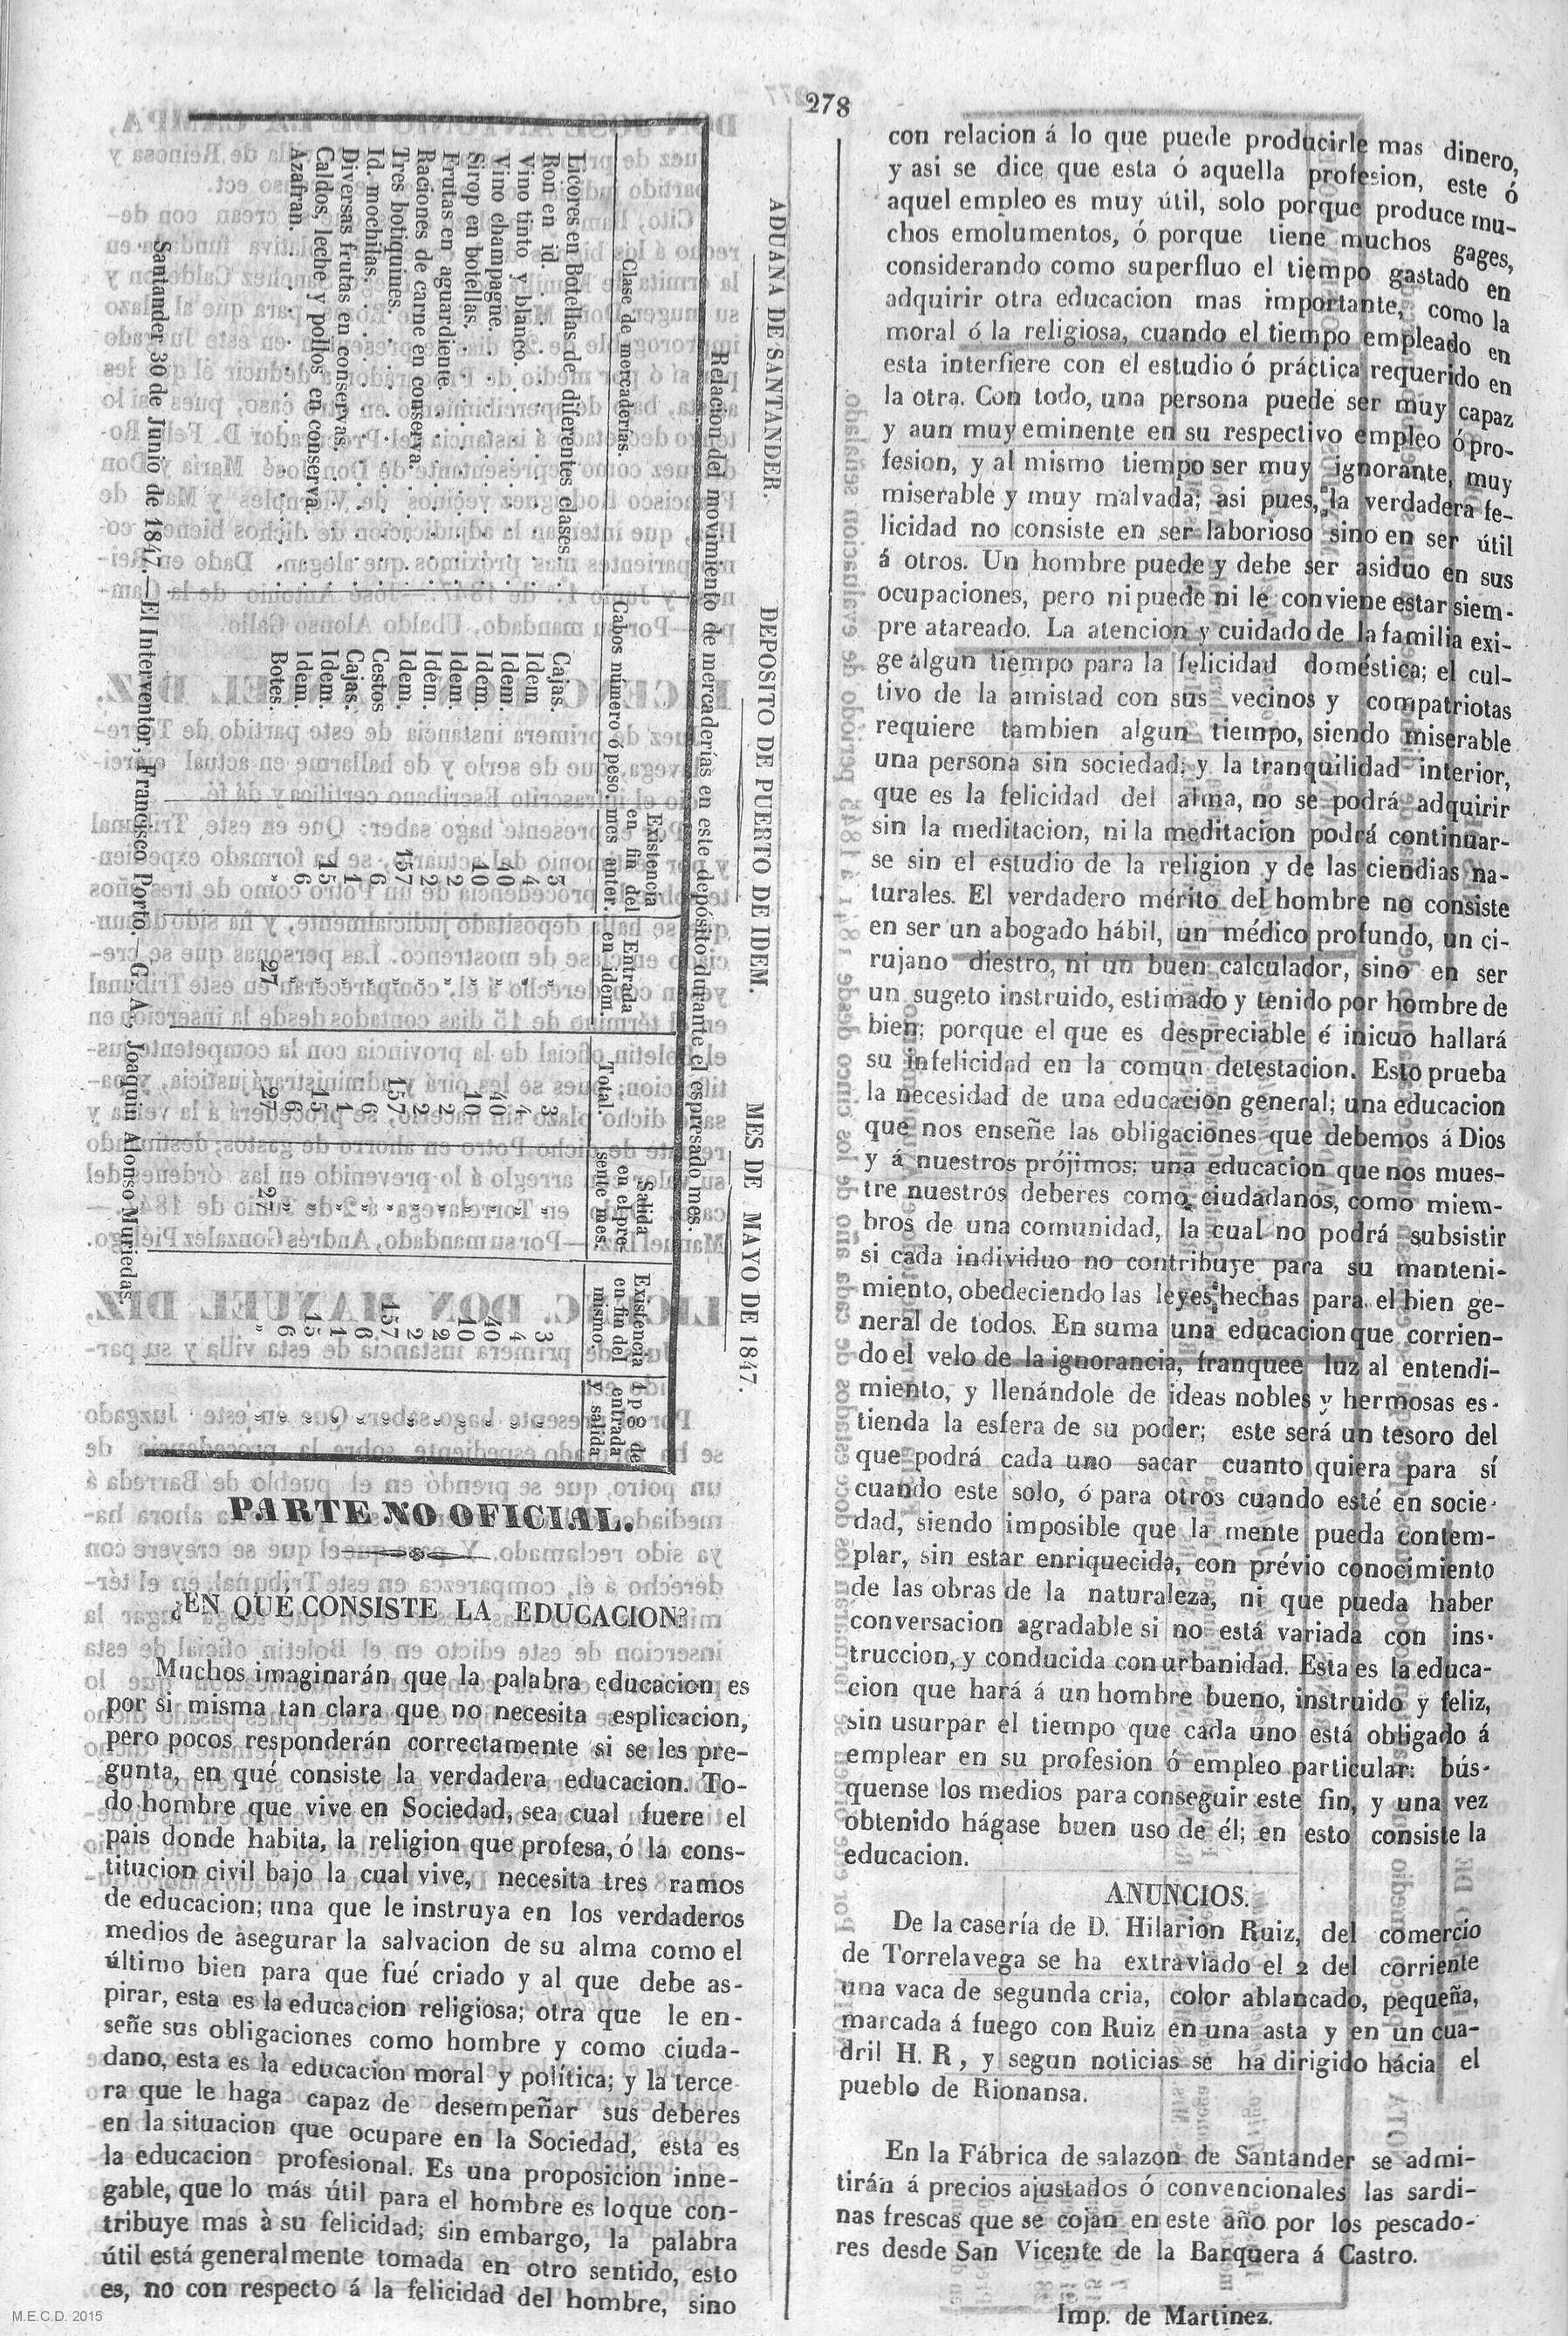 278
ADUANA DE SANTANDER. DEPOSITO DE PUERTO DE IDEM. MES DE MAYO DE 1847.
Relacion del movimiento de mercaderías en este depósito durante el espresado mes.
Clase de mercaderías. Cabos número ó peso Existencia en fin del mes anter. Entrada en idem. Total. Salida en el presente mes. Existencia en fin del mismo. 1 p% de entrada y salida
Licores en Botellas de diferentes clases. Cajas. 3 » 3 » 3 »
Ron en id. Idem 4 » 4 » 4 »
Vino tinto y blanco. Idem. 40 » 40 » 40 »
Vino champagne. Idem. 10 » 10 » 10 »
Sirop en botellas. Idem. 2 » 2 » 2 »
Frutas en aguardiente. Idem. 2 » 2 » 2 »
Raciones de carne en conserva. Idem. 157 » 157 » 157 »
Tres botiquines. Cestos 6 » 6 » 6 »
Id. mochilas. Cajas. 1 » 1 » 1 »
Diversas frutas en conservas. Idem. 15 » 15 » 15 »
Caldos, leche y pollos en conserva. Idem. 6 » 6 » 6 »
Azafran. Botes. » 27 27 27 » »
Santander 30 de Junio de 1847.—El Interventor, Francisco Porto.—G. A., Joaquin Alonso Muriedas.
PARTE NO OFICIAL.
¿EN QUÉ CONSISTE LA EDUCACION?
Muchos imaginarán que la palabra educacion es
por si misma tan clara que no necesita esplicacion,
pero pocos responderán correctamente si se les pre-
gunta, en qué consiste la verdadera educacion. To-
do hombre que vive en Sociedad, sea cual fuere el
pais donde habita, la religion que profesa, ó la cons-
titucion civil bajo la cual vive, necesita tres ramos
de educacion; una que le instruya en los verdaderos
medios de asegurar la salvacion de su alma como el
último bien para que fué criado y al que debe as-
pirar, esta es la educacion religiosa; otra que le en-
señe sus obligaciones como hombre y como ciuda-
dano, esta es la educacion moral y política; y la terce-
ra que le haga capaz de desempeñar sus deberes
en la situacion que ocupare en la Sociedad, esta es
la educacion profesional. Es una proposicion inne-
gable, que lo más útil para el hombre es lo que con-
tribuye mas à su felicidad; sin embargo, la palabra
útil está generalmente tomada en otro sentido, esto
es, no con respecto á la felicidad del hombre, sino
con relacion á lo que puede producirle mas dinero,
y asi se dice que esta ó aquella profesion, este ó
aquel empleo es muy útil, solo porque produce mu-
chos emolumentos, ó porque tiene muchos gages,
considerando como superfluo el tiempo gastado en
adquirir otra educacion mas importante, como la
moral ó la religiosa, cuando el tiempo empleado en
esta interfiere con el estudio ó práctica requerido en
la otra. Con todo, una persona puede ser muy capaz
y aun muy eminente en su respectivo empleo ó pro-
fesion, y al mismo tiempo ser muy ignorante, muy
miserable y muy malvada; asi pues, la verdadera fe-
licidad no consiste en ser laborioso sino en ser útil
á otros. Un hombre puede y debe ser asiduo en sus
ocupaciones, pero ni puede ni le conviene estar siem-
pre atareado. La atencion y cuidado de la familia exi-
ge algun tiempo para la felicidad doméstica; el cul-
tivo de la amistad con sus vecinos y compatriotas
requiere tambien algun tiempo, siendo miserable
una persona sin sociedad; y la tranquilidad interior,
que es la felicidad del alma, no se podrá adquirir
sin la meditacion, ni la meditacion podrá continuar-
se sin el estudio de la religion y de las ciendias na-
turales. El verdadero mérito del hombre no consiste
en ser un abogado hábil, un médico profundo, un ci-
rujano diestro, ni un buen calculador, sino en ser
un sugeto instruido, estimado y tenido por hombre de
bien; porque el que es despreciable é inicuo hallará
su infelicidad en la comun detestacion. Esto prueba
la necesidad de una educacion general; una educacion
que nos enseñe las obligaciones que debemos á Dios
y á nuestros prójimos; una educacion que nos mues-
tre nuestros deberes como ciudadanos, como miem-
bros de una comunidad, la cual no podrá subsistir
si cada individuo no contribuye para su manteni-
miento, obedeciendo las leyes hechas para el bien ge-
neral de todos. En suma una educacion que corrien-
do el velo de la ignorancia, franquee luz al entendi-
miento, y llenándole de ideas nobles y hermosas es-
tienda la esfera de su poder; este será un tesoro del
que podrá cada uno sacar cuanto quiera para sí
cuando este solo, ó para otros cuando esté en socie-
dad, siendo imposible que la mente pueda contem-
plar, sin estar enriquecida, con prévio conocimiento
de las obras de la naturaleza, ni que pueda haber
conversacion agradable si no está variada con ins-
truccion, y conducida con urbanidad. Esta es la educa-
cion que hará á un hombre bueno, instruido y feliz,
sin usurpar el tiempo que cada uno está obligado á
emplear en su profesion ó empleo particular: bús-
quense los medios para conseguir este fin, y una vez
obtenido hágase buen uso de él; en esto consiste la
educacion.
ANUNCIOS.
De la casería de D. Hilarion Ruiz, del comercio
de Torrelavega se ha extraviado el 2 del corriente
una vaca de segunda cria, color ablancado, pequeña,
marcada á fuego con Ruiz en una asta y en un cua-
dril H. R, y segun noticias se ha dirigido hácia el
pueblo de Rionansa.
En la Fábrica de salazon de Santander se admi-
tirán á precios ajustados ó convencionales las sardi-
nas frescas que se cojan en este año por los pescado-
res desde San Vicente de la Barquera á Castro.
Imp. de Martinez.
M.E.C.D. 2015